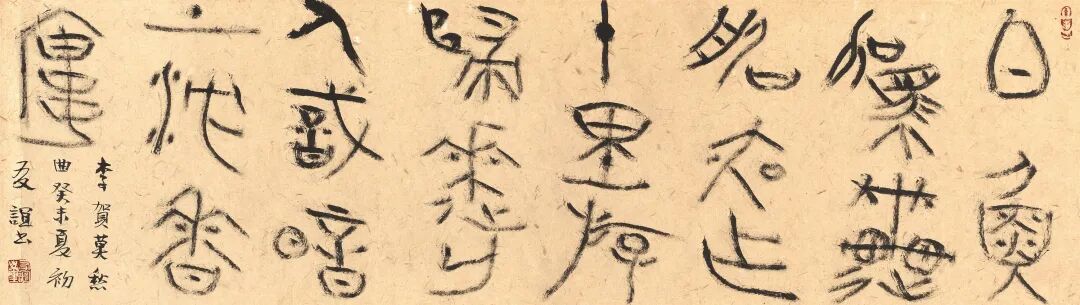 白魚
駕蓮
船夜作
十里游
歸來亡
人識暗
上沈香
樓
李賀莫愁
曲癸未夏初
友誼书